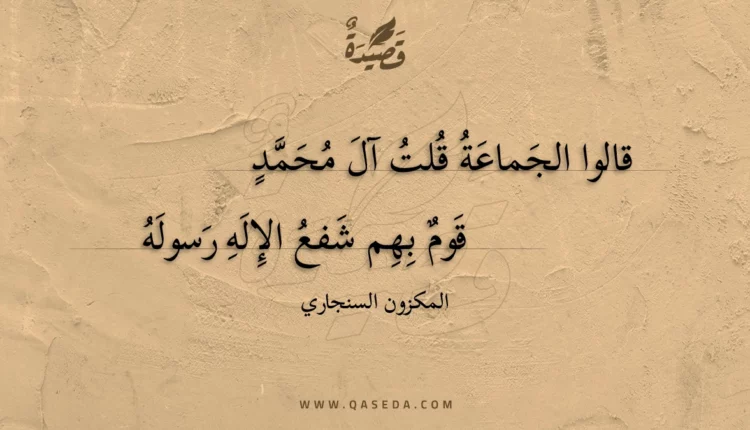 قَصِيدَةٌ
قالوا الجَماعَةُ قُلتُ آلَ مُحَمَّدٍ
قَومٌ بِهِم شَفعُ الإِلَهِ رَسولَهُ
المكزون السنجاري
WWW.QASEDA.COM